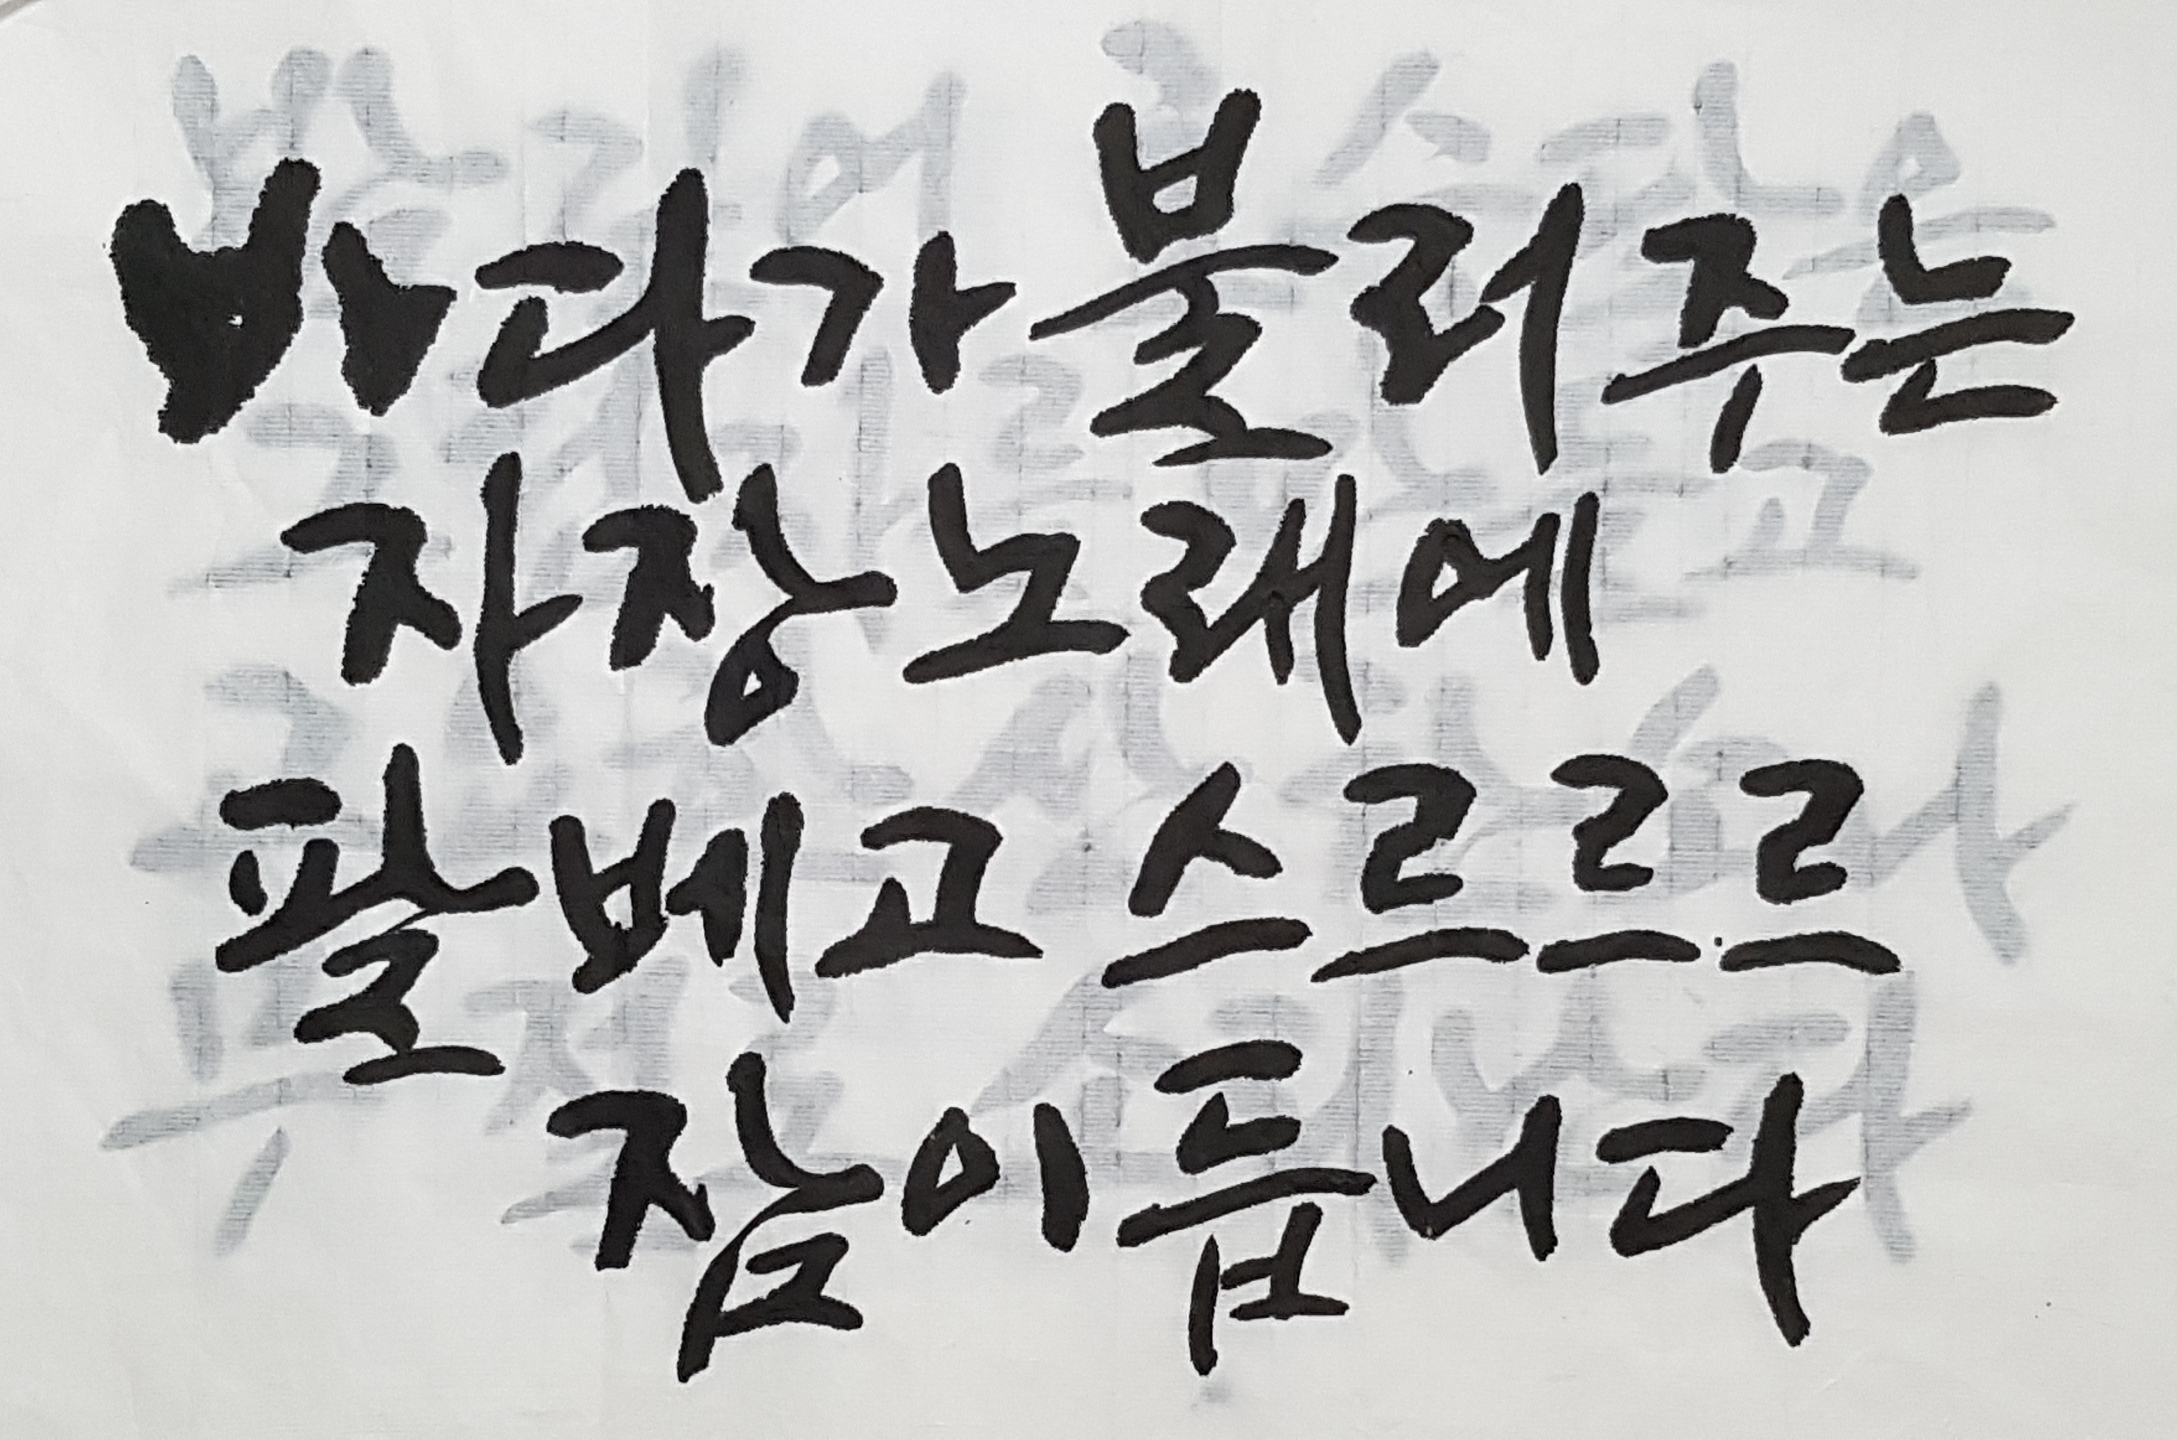 바다가 불러주는
자장노래에
팔베고 스르르르
잠이듭니다